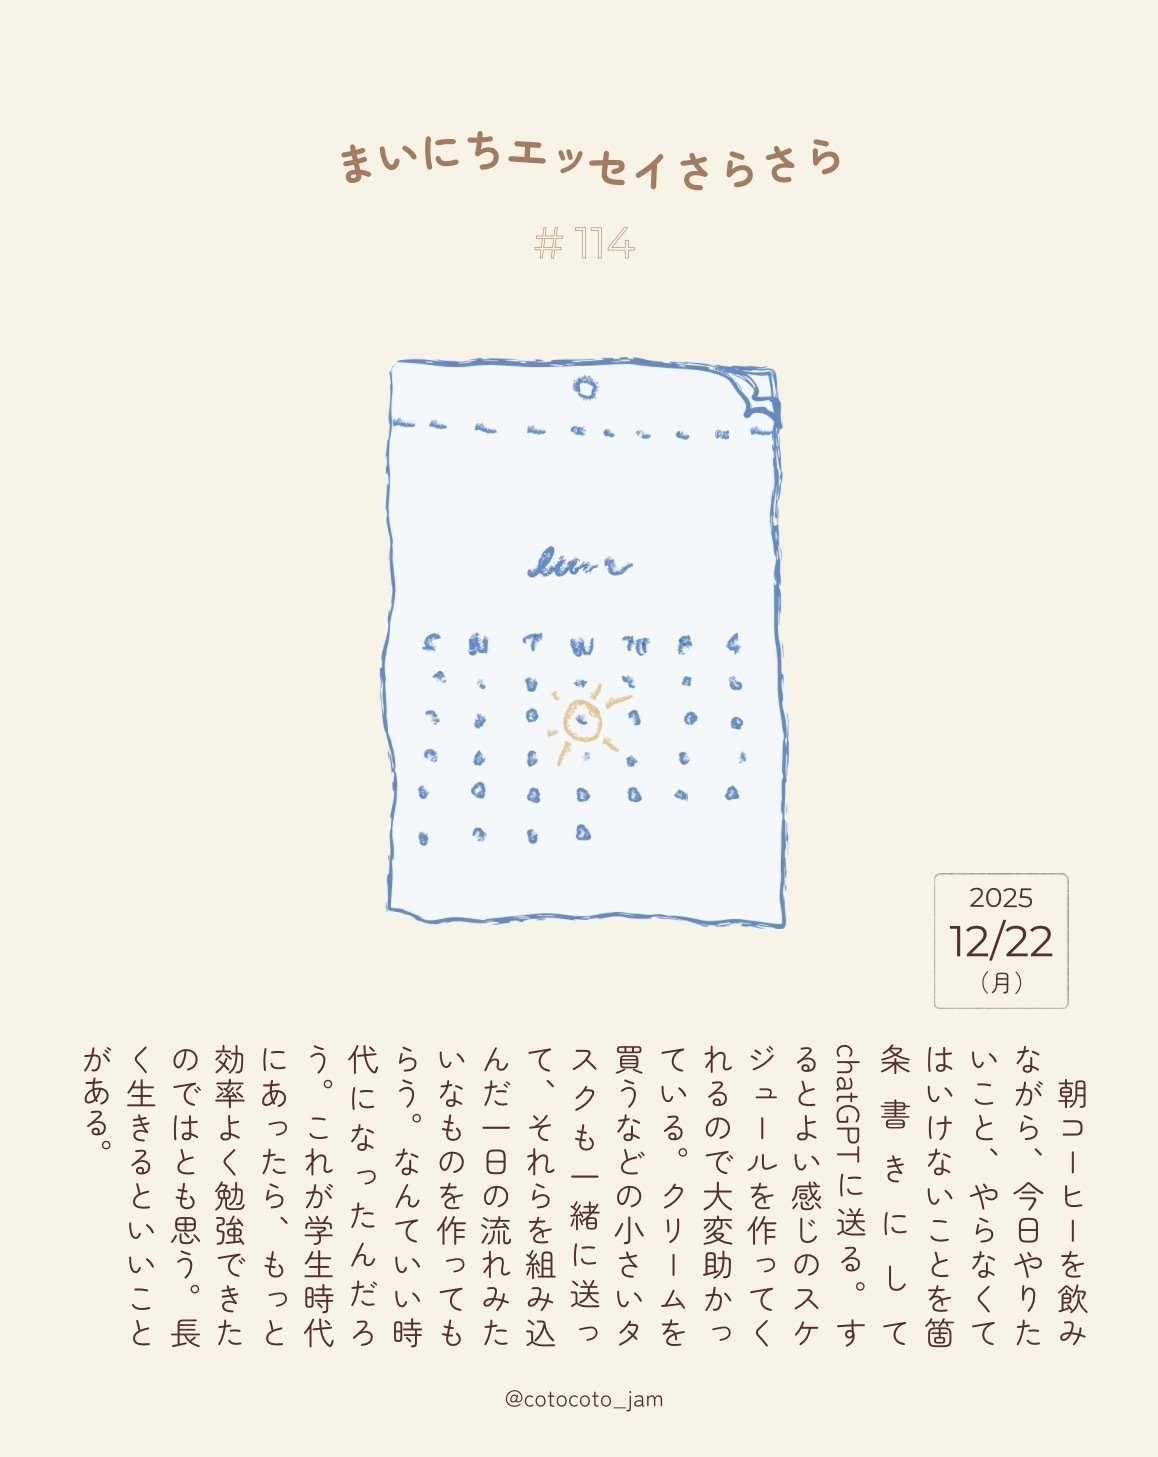 まいにちエッセイさらさら
#114
2025
12/22
(月)
朝コーヒーを飲み
ながら、今日やりた
いこと、やらなくて
はいけないことを箇
条書きにして
chatGPTに送る。す
るとよい感じのスケ
ジュールを作ってく
れるので大変助かっ
ている。クリームを
買うなどの小さいタ
スクも一緒に送っ
て、それらを組み込
んだ一日の流れみた
いなものを作っても
らう。なんていい時
代になったんだろ
う。これが学生時代
にあったら、もっと
効率よく勉強できた
のではとも思う。長
く生きるといいこと
がある。
@cotocoto_jam